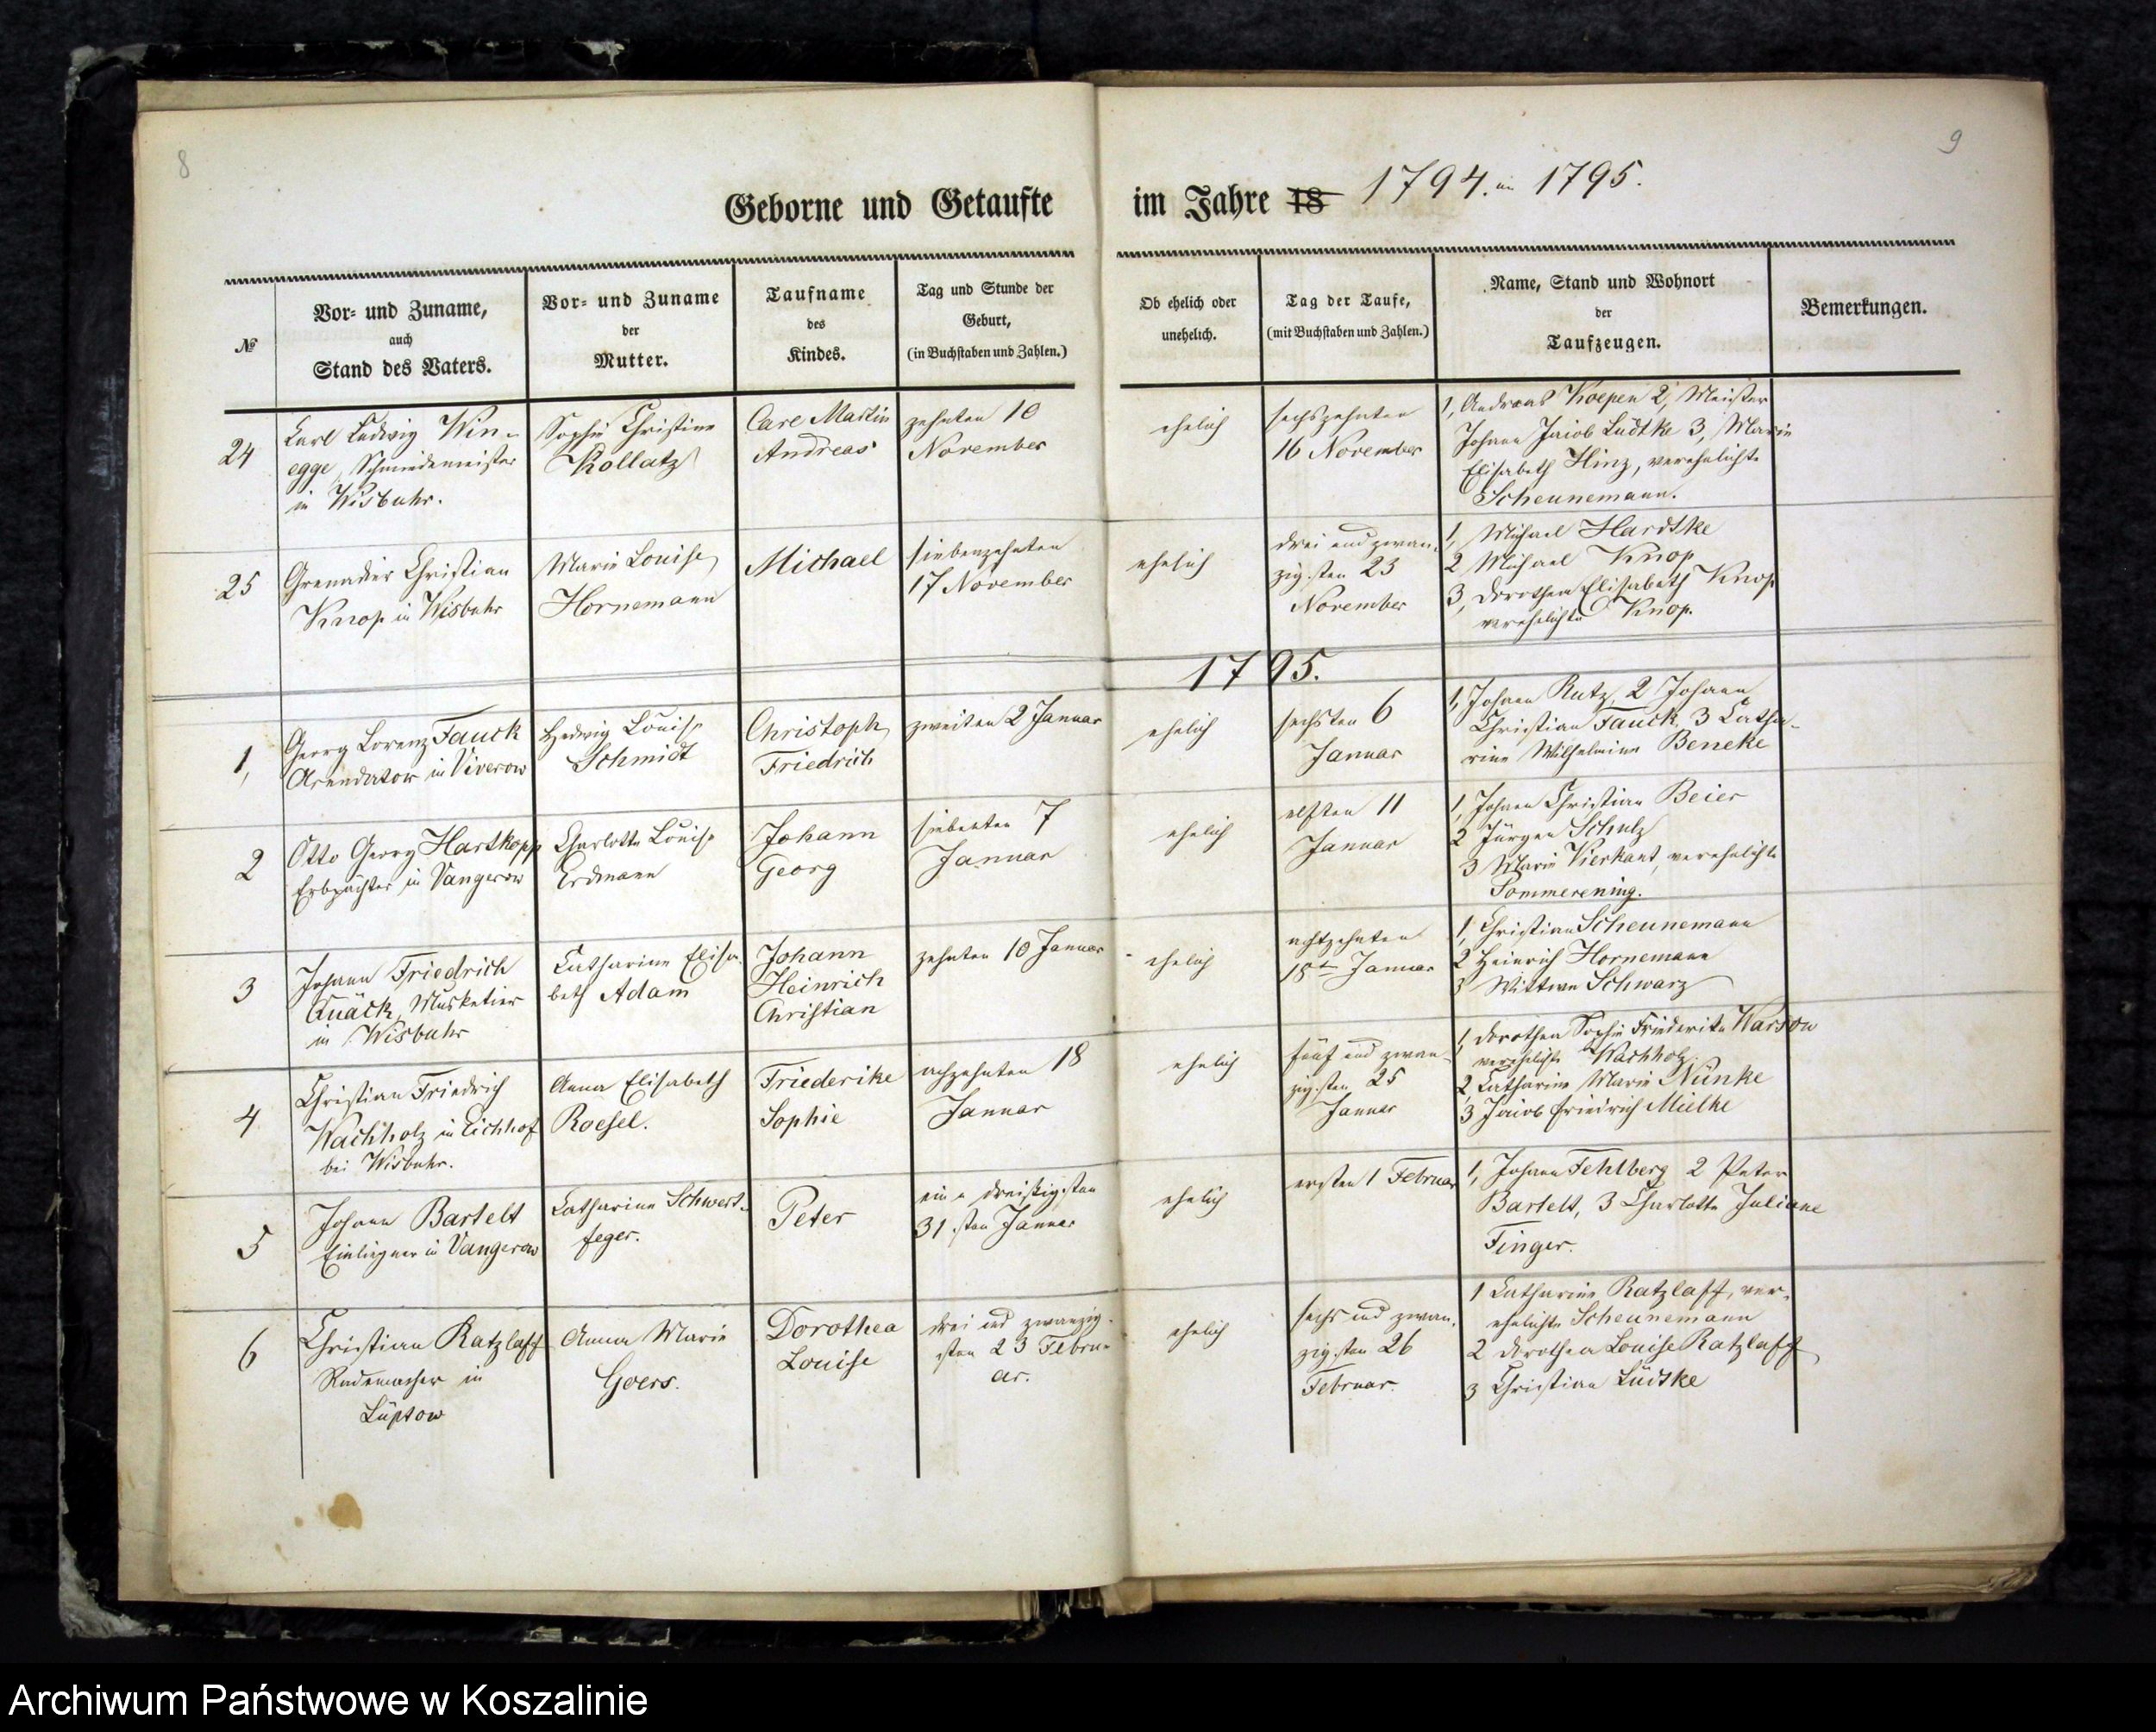 8
9
Geborne und Getaufte
im Jahre 18 1794. u 1795.
№
Vor- und Zuname,
auch
Stand des Vaters.
Vor- und Zuname
der
Mutter.
Taufname
des
Kindes.
Tag und Stunde der
Geburt,
(in Buchstaben und Zahlen.)
Ob ehelich oder
unehelich.
Tag der Taufe,
(mit Buchstaben und Zahlen.)
Name, Stand und Wohnort
der
Taufzeugen.
Bemerkungen.
24
Carl Ludwig Win-
egge, Schmiedemeister
in Wisbuhr.
Sophie Christine
Kollatz
Carl Martin
Andreas
zehnten 10
November
ehelich
sechszehnten
16 November
1, Andreas Koepen 2, Meister
Johann Jacob Ludtke 3, Marie
Elisabeth Hinz, verehelichte
Scheunemann.
25
Grenadier Christian
Knop in Wisbuhr
Marie Louise
Hornemann
Michael
siebenzehnten
17 November
ehelich
drei und zwan-
zigsten 23
November
1, Michael Hardtke
2 Michael Knop
3, Dorothea Elisabeth Knop
verehelichte Knop.
1795.
1,
Georg Lorenz Fauck
Arendator in Viverow
Hedwig Louise
Schmidt
Christoph
Friedrich
zweiten 2 Januar
ehelich
sechsten 6
Januar
1, Johann Rutz, 2 Johann
Christian Fauck, 3 Catha-
rine Wilhelmine Beneke
2
Otto Georg Hartkopp
Erbpächter in Vangerow
Charlotte Louise
Erdmann
Johann
Georg
siebenten 7
Januar
ehelich
elften 11
Januar
1, Johann Christian Beier
2 Jürgen Schulz
3 Marie Vierkant, verehelichte
Sommerening.
3
Johann Friedrich
Quäck, Musketier
in Wisbuhr
Catharine Elisa-
beth Adam
Johann
Heinrich
Christian
zehnten 10 Januar
ehelich
achtzehnten
18t Januar
1, Christian Scheunemann
2 Heinrich Hornemann
3 Wittwe Schwarz
4
Christian Friedrich
Wachholz in Eichhof
bei Wisbuhr.
Anna Elisabeth
Roesel.
Friederike
Sophie
achzehnten 18
Januar
ehelich
fünf und zwan-
zigsten 25
Januar
1, Dorothea Sophie Friederike Warsow
verehelichte Wachholz.
2 Catharine Marie Nünke
3 Jacob Friedrich Mielke
5
Johann Bartelt
Einlieger in Vangerow
Catharine Schwert-
feger.
Peter
ein u dreißigsten
31sten Januar
ehelich
ersten 1 Februar
1, Johann Fehlberg 2 Peter
Bartelt, 3 Charlotte Juliane
Finger.
6
Christian Ratzlaff
Rademacher in
Lüptow
Anna Marie
Goers.
Dorothea
Louise
drei und zwanzig-
sten 23 Febru-
ar.
ehelich
sechs und zwan-
zigsten 26
Februar.
1 Catharine Ratzlaff, ver-
ehelichte Scheunemann
2 Dorothea Louise Ratzlaff
3 Christian Lüdtke
Archiwum Państwowe w Koszalinie